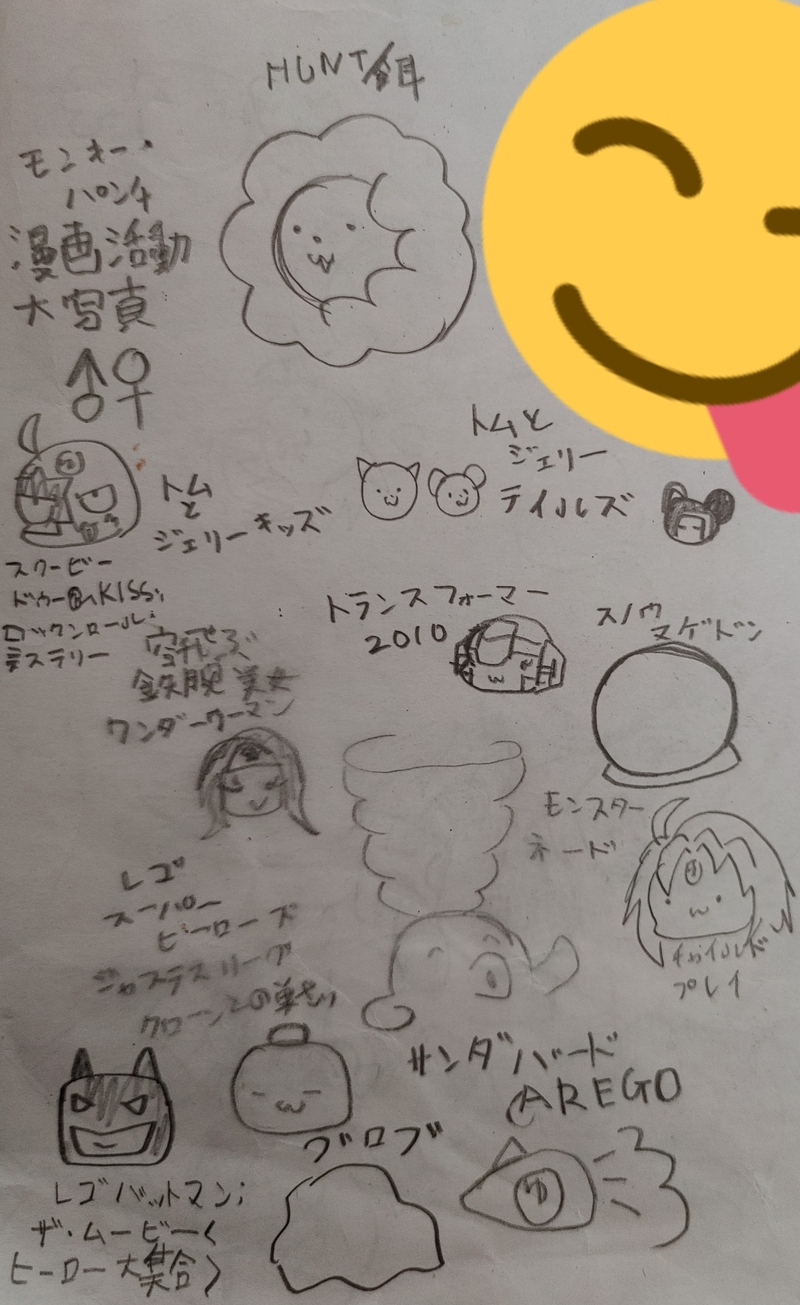 HUNT/餌
モンキー・
パンチ
漫画活動
大写真
♂♀
トムと
ジェリー
テイルズ
トム
と
ジェリーキッズ
スクービー
ドゥー
KISS;
ロックンロール
ミステリー
トランスフォーマー
2010
スノウ
マゲドン
空飛ぶ
鉄腕美女
ワンダーウーマン
モンスター
ネード
レゴ
スーパー
ヒーローズ
ジャスティスリーグ
クローンとの戦い
チャイルド
プレイ
サンダバード
ARE GO
ブロブ
レゴバットマン;
ザ・ムービー<
ヒーロー大集合>